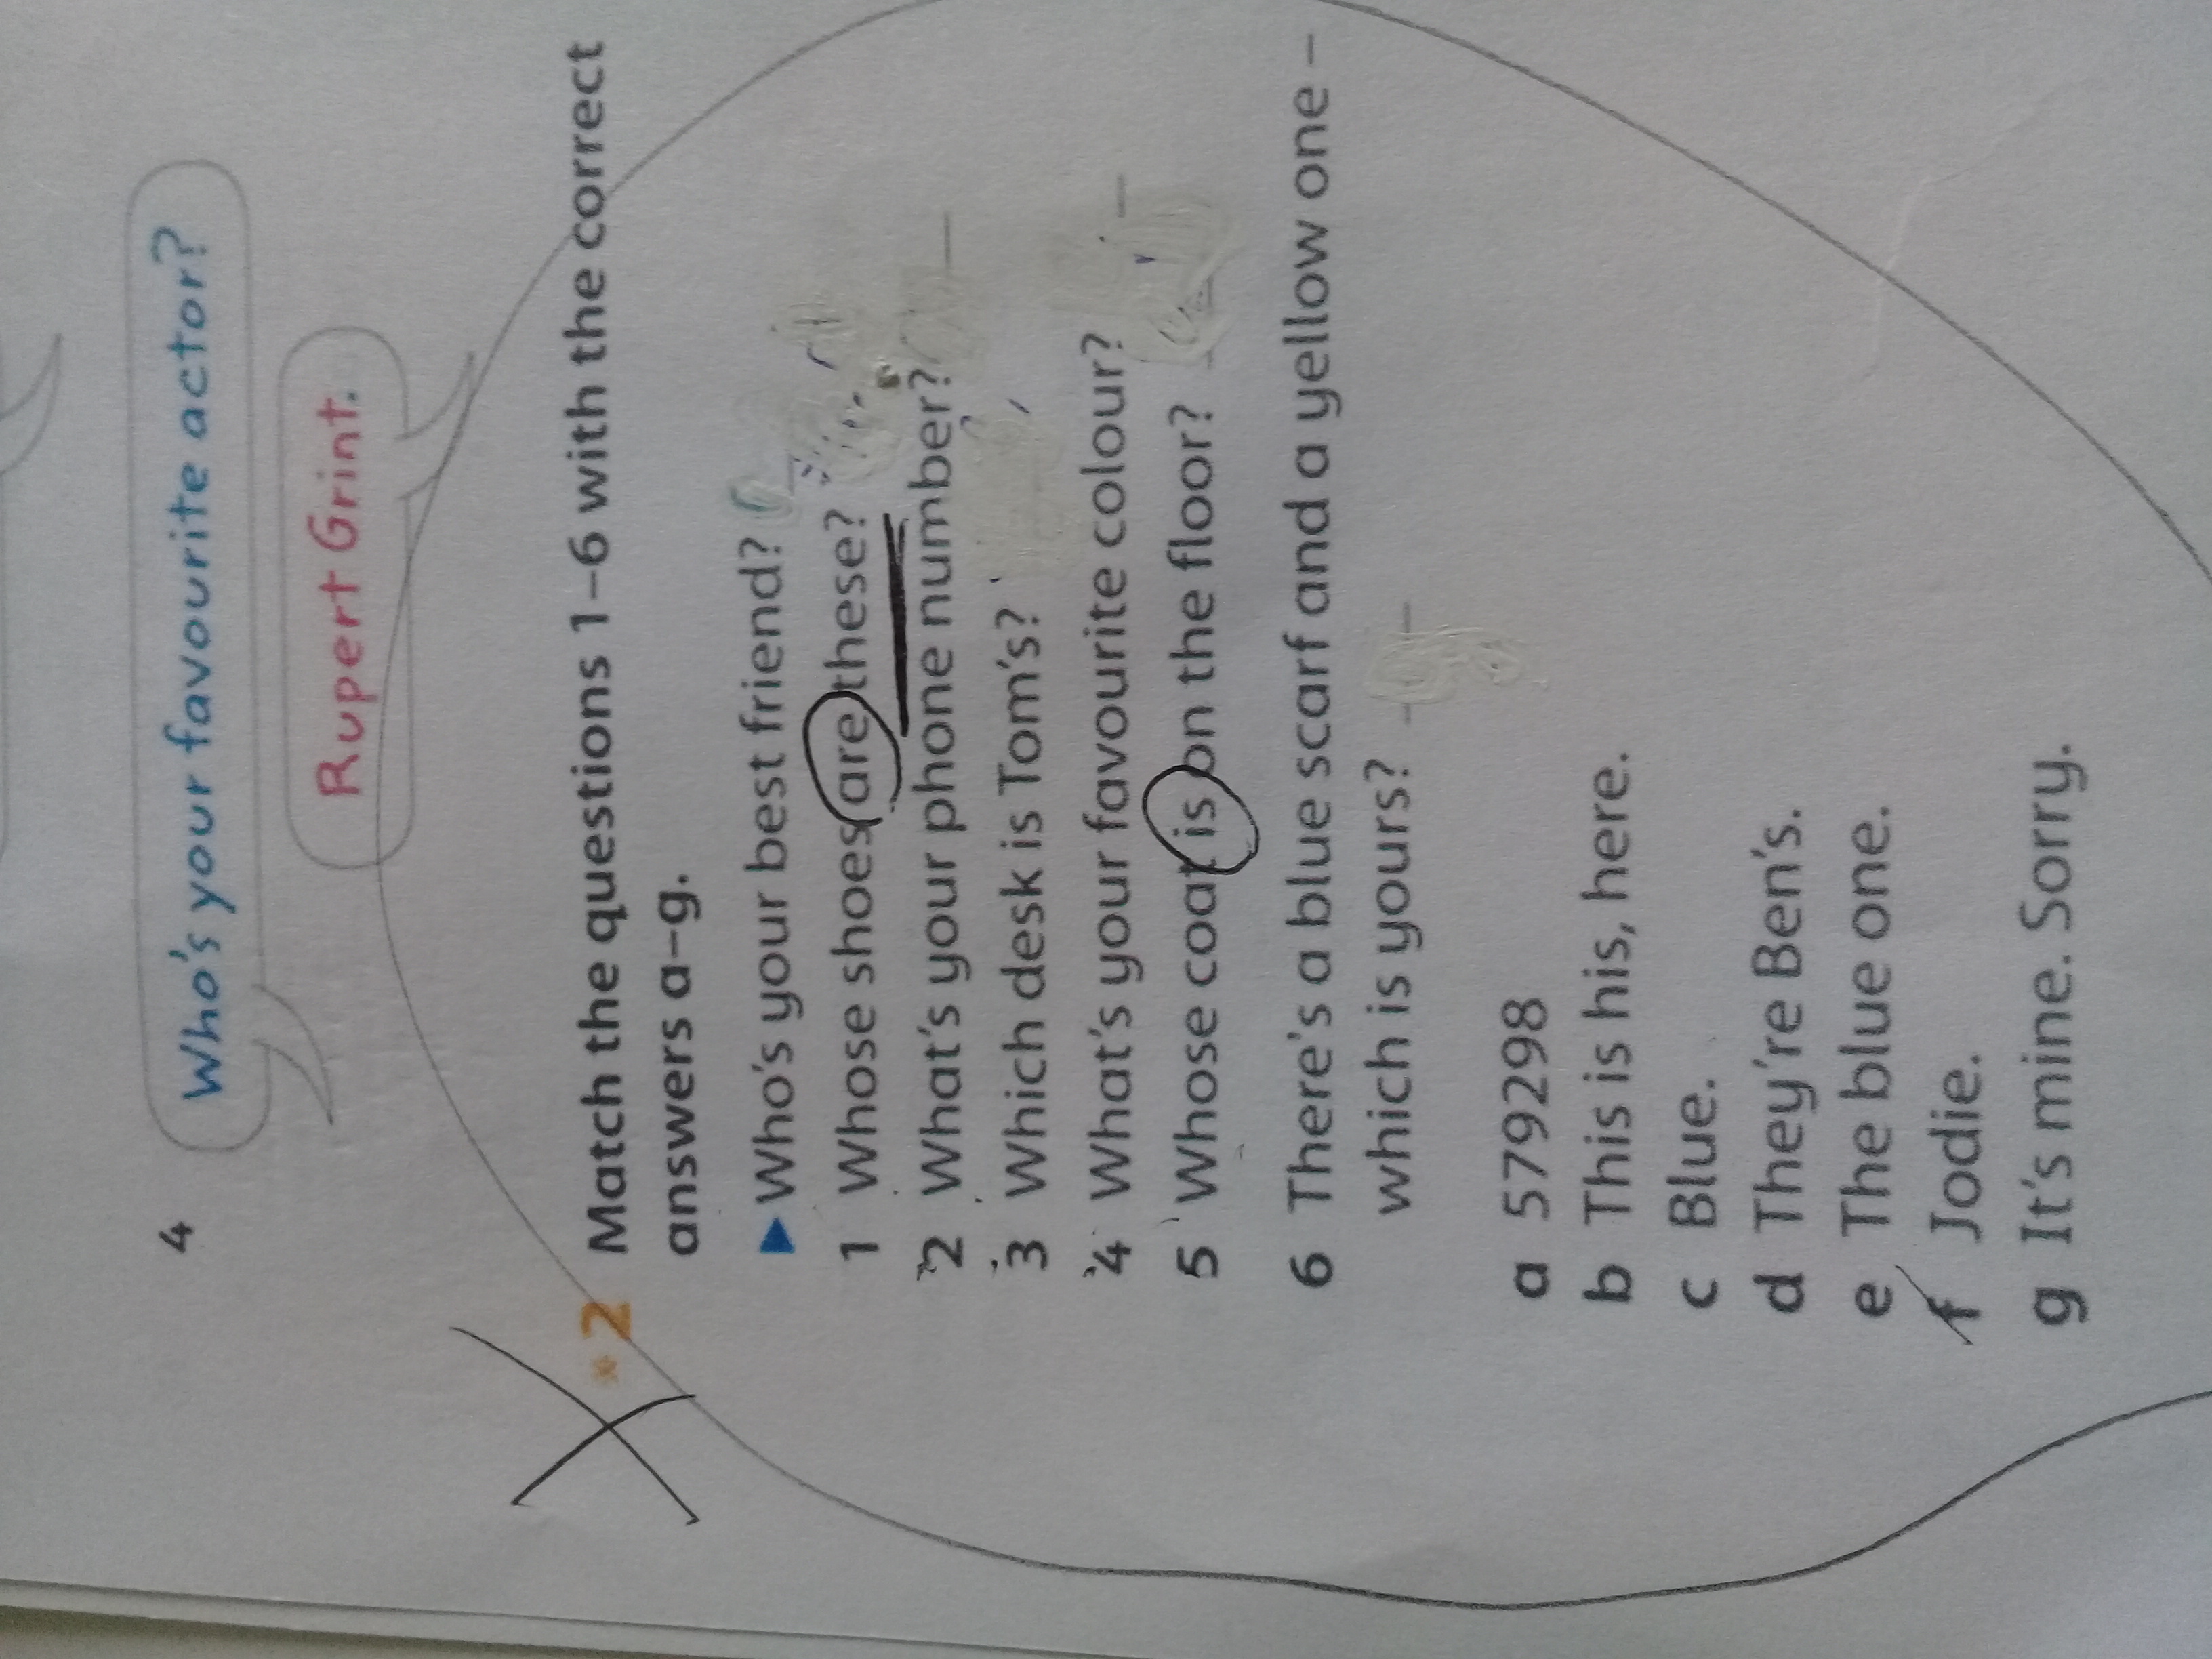 4
Who's your favourite actor?
Rupert Grint.
* 2 Match the questions 1–6 with the correct
answers a–g.
▶ Who's your best friend?
1 Whose shoes are these?
2 What's your phone number?
3 Which desk is Tom's?
4 What's your favourite colour?
5 Whose coat is on the floor?
6 There's a blue scarf and a yellow one –
which is yours?
a 579298
b This is his, here.
c Blue.
d They're Ben's.
e The blue one.
f Jodie.
g It's mine. Sorry.